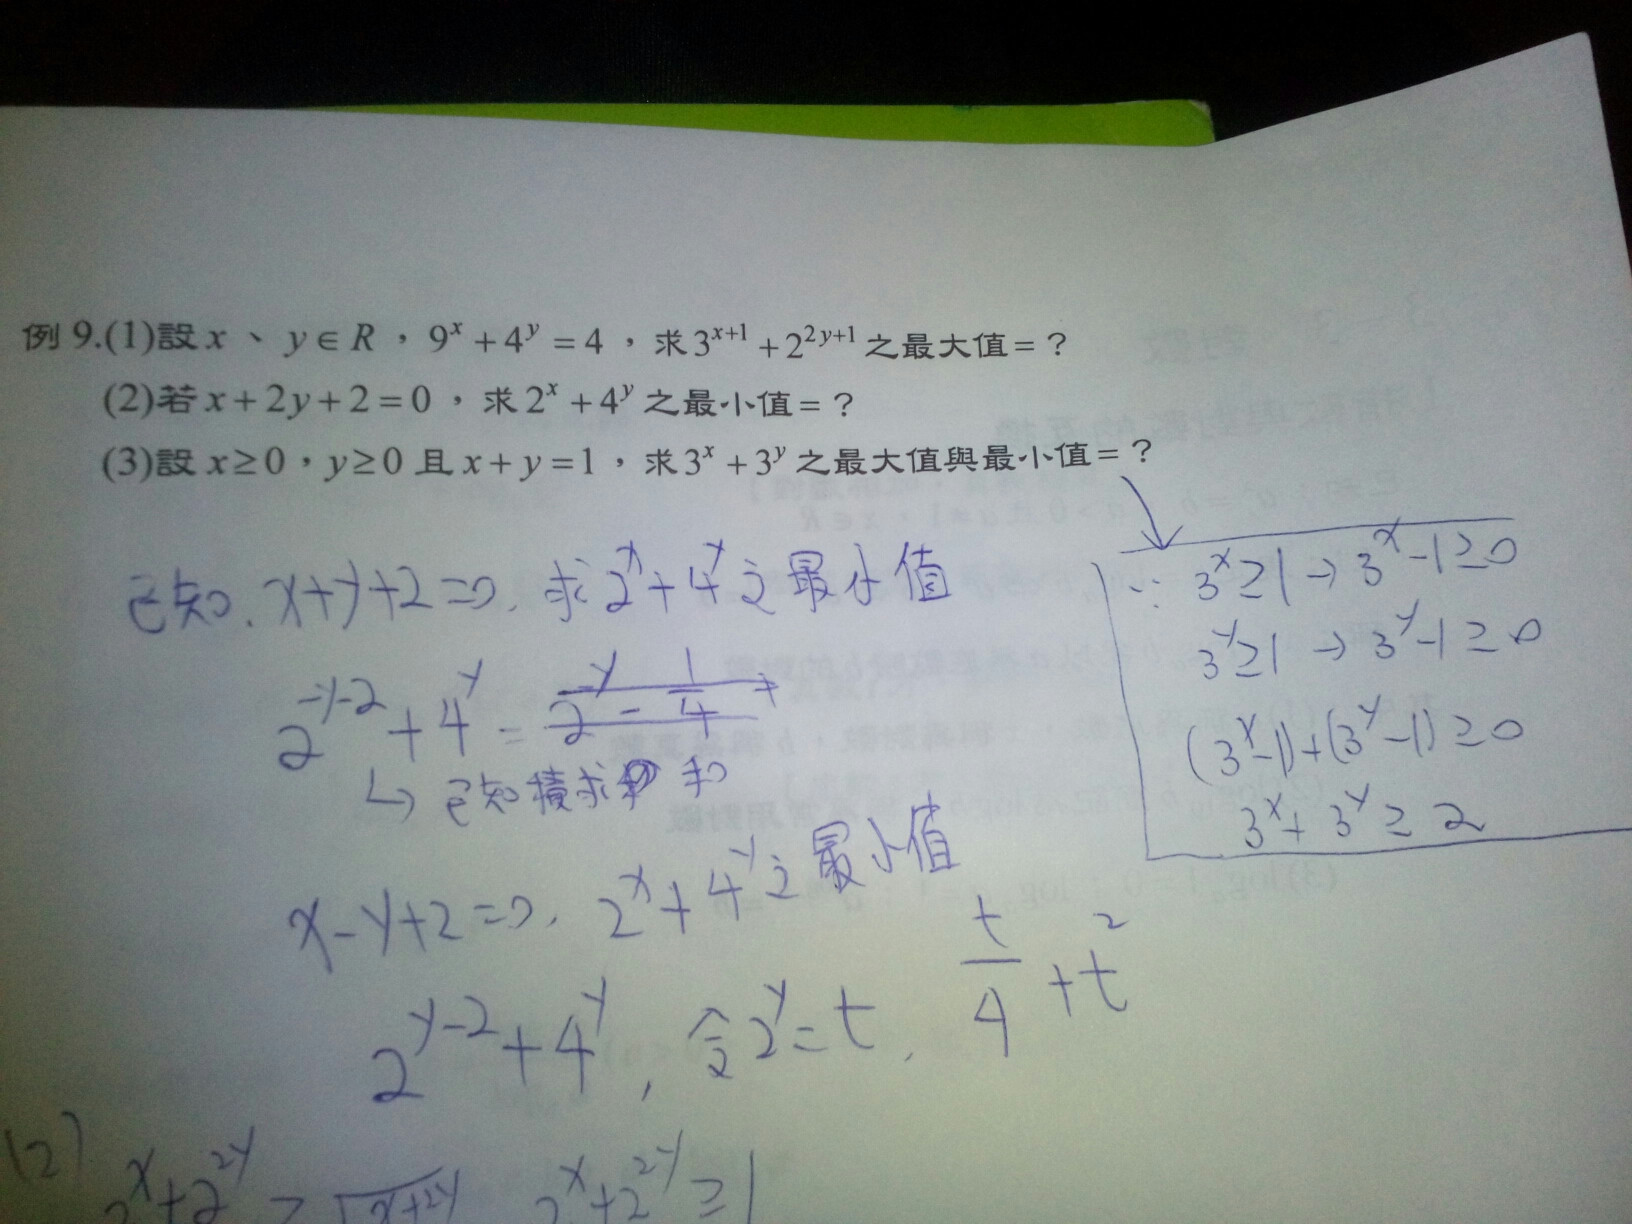 例 9.(1)設 x 、 y ∈ R ，9^x + 4^y = 4 ，求 3^{x+1} + 2^{2y+1} 之最大值 = ？
(2)若 x + 2y + 2 = 0 ，求 2^x + 4^y 之最小值 = ？
(3)設 x ≥ 0，y ≥ 0 且 x + y = 1，求 3^x + 3^y 之最大值與最小值 = ？
已知. x+y+2=0, 求 2^x + 4^y 之最小值
2^{-y-2} + 4^y =
↳ 已知積求和
x-y+2=0, 2^x + 4^y 之最小值
2^{y-2} + 4^y , 令 2^y = t, t/4 + t^2
∵ 3^x ≥ 1 → 3^x - 1 ≥ 0
3^y ≥ 1 → 3^y - 1 ≥ 0
(3^x - 1) + (3^y - 1) ≥ 0
3^x + 3^y ≥ 2
(2) 2^x + 2^{2y} ≥ 2^x + 2^{2y} ≥ 1